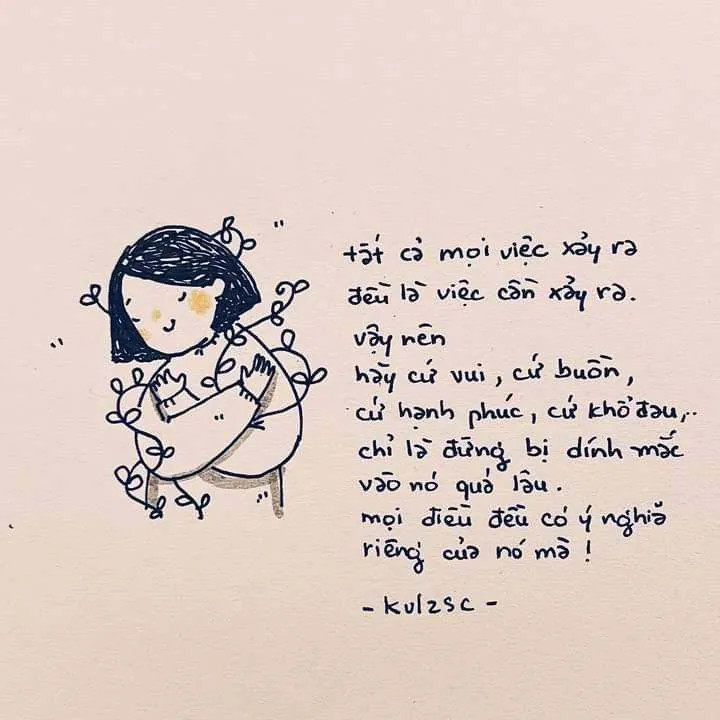 tất cả mọi việc xảy ra
đều là việc cần xảy ra.
vậy nên
hãy cứ vui, cứ buồn,
cứ hạnh phúc, cứ khổ đau,..
chỉ là đừng bị dính mắc
vào nó quá lâu.
mọi điều đều có ý nghĩa
riêng của nó mà !
- kulzsc -